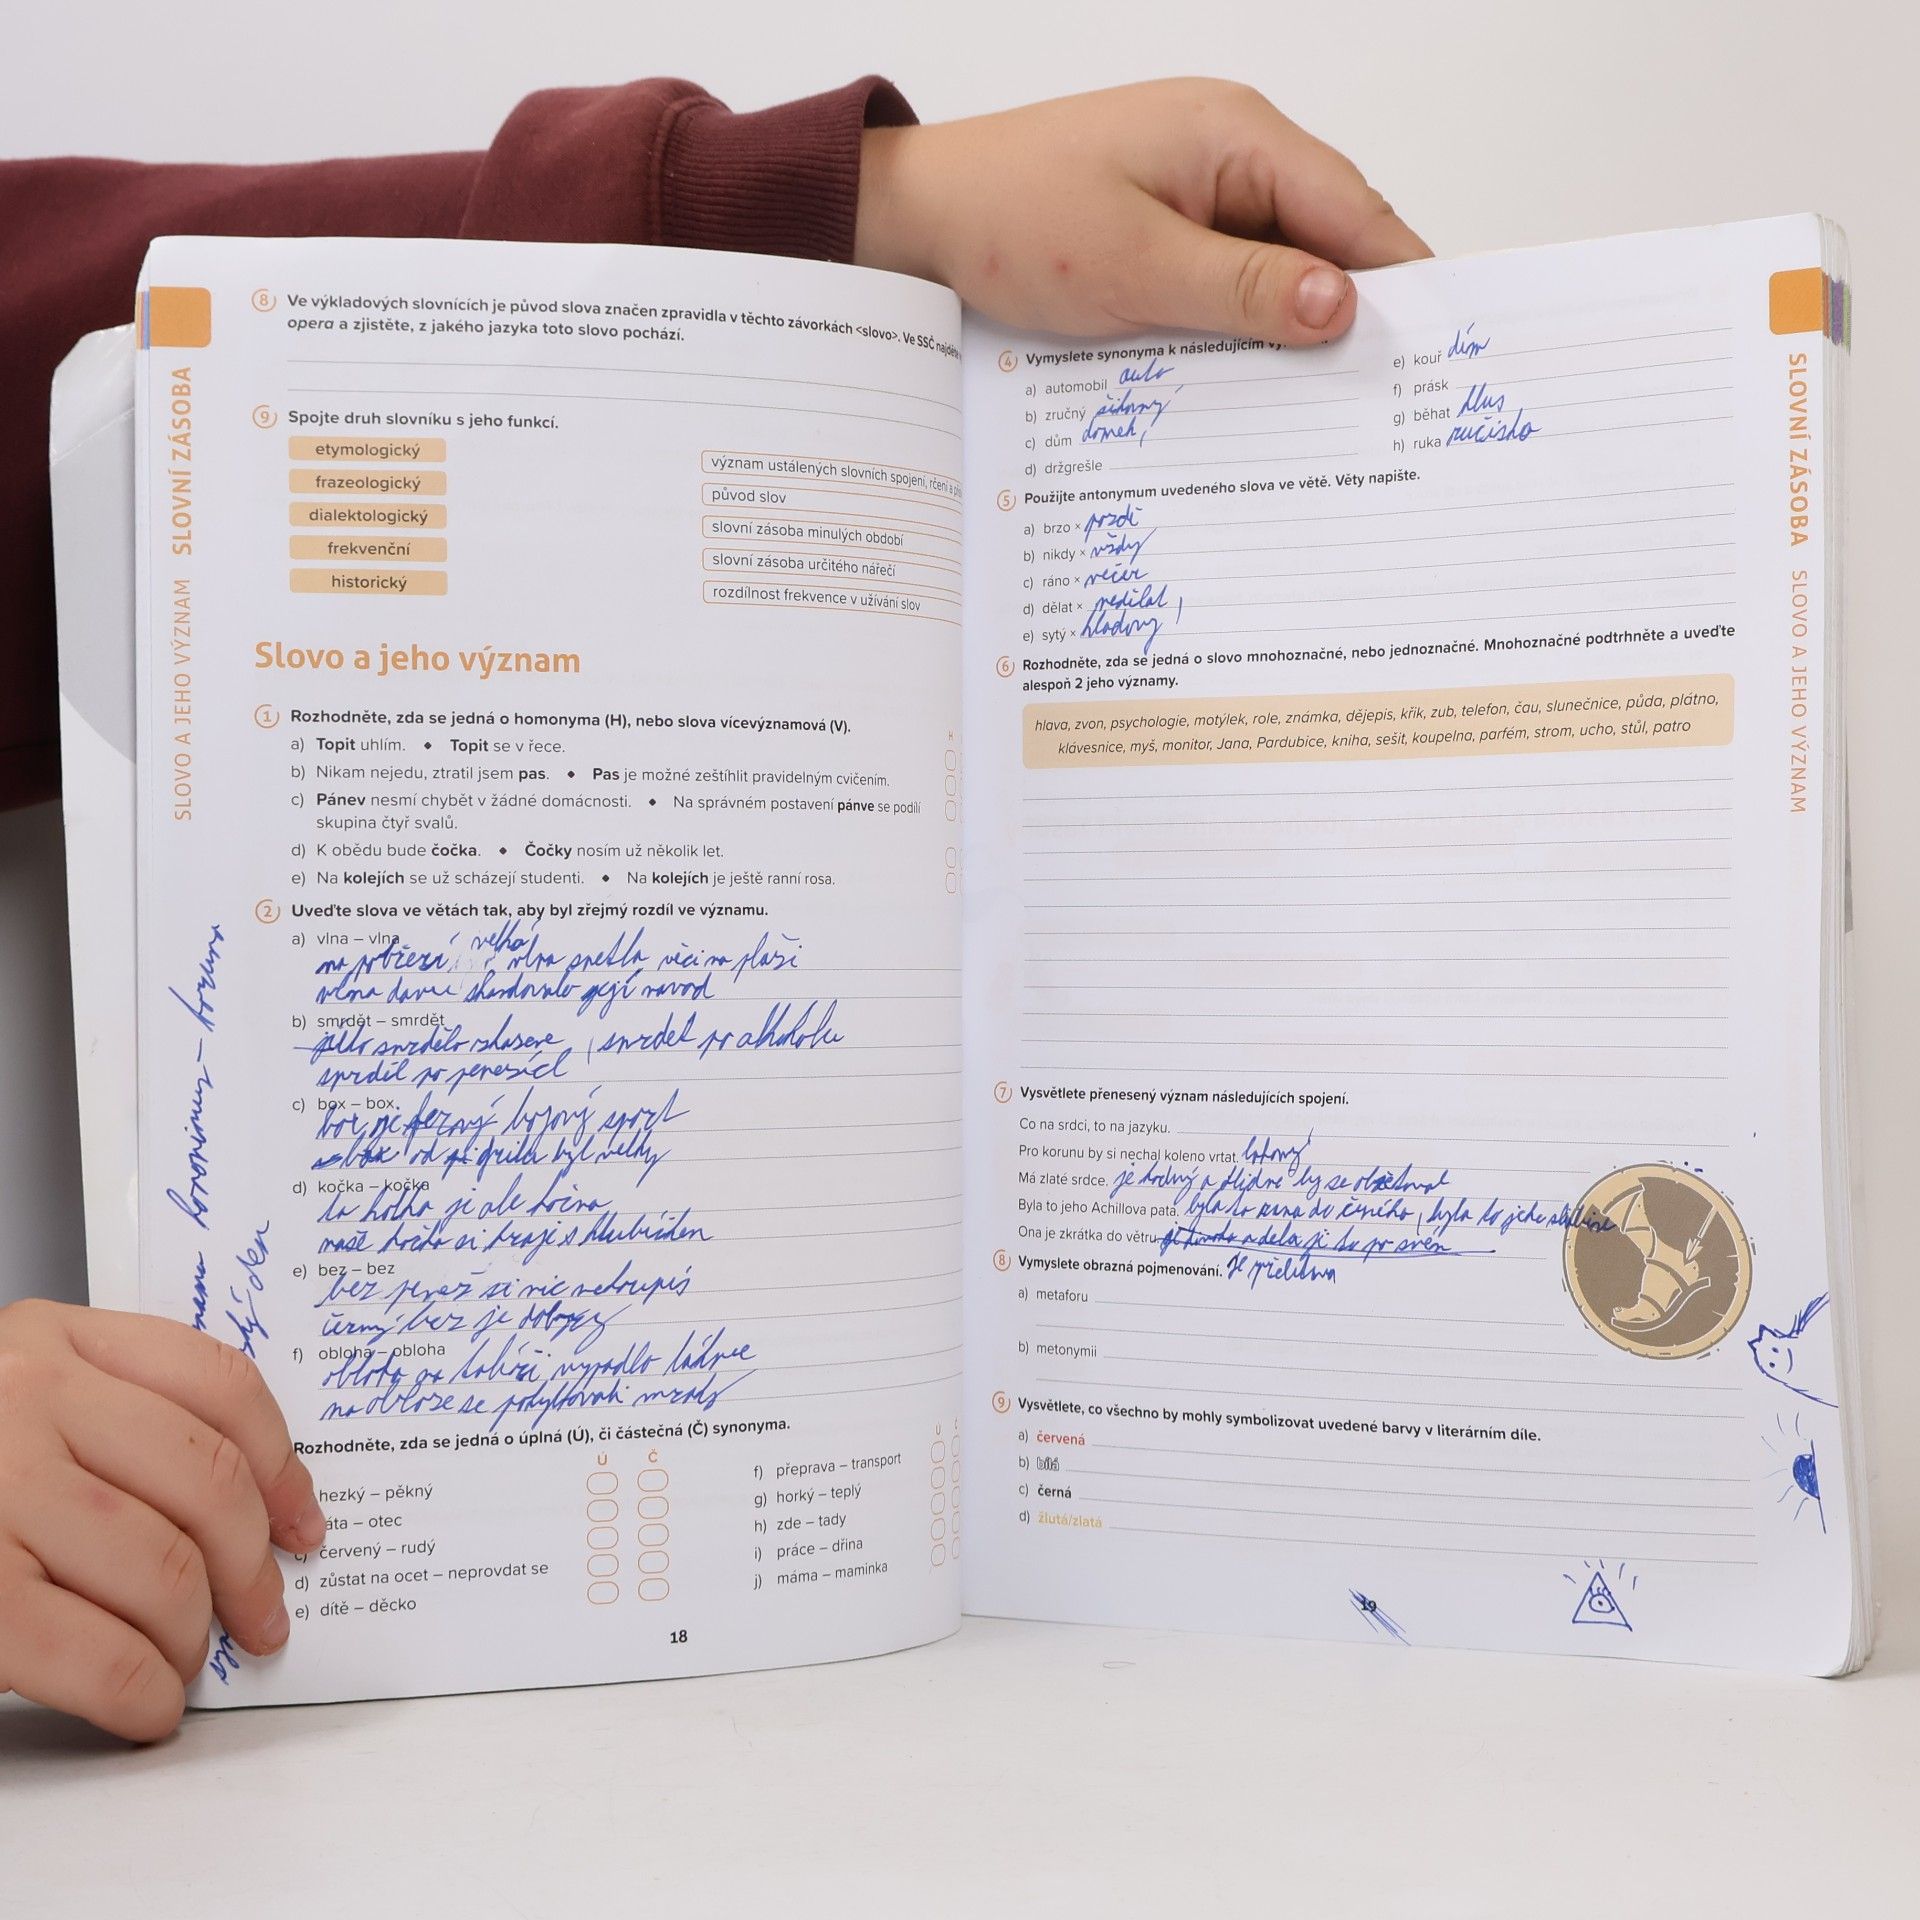 SLOVNÍ ZÁSOBA
SLOVO A JEHO VÝZNAM
8 Ve výkladových slovnících je původ slova značen zpravidla v těchto závorkách <slovo>. Ve SSČ najděte
opera a zjistěte, z jakého jazyka toto slovo pochází.
9 Spojte druh slovníku s jeho funkcí.
etymologický
frazeologický
dialektologický
frekvenční
historický
význam ustálených slovních spojení, rčení a
původ slov
slovní zásoba minulých období
slovní zásoba určitého nářečí
rozdílnost frekvence v užívání slov
Slovo a jeho význam
1 Rozhodněte, zda se jedná o homonyma (H), nebo slova vícevýznamová (V).
H
a) Topit uhlím. • Topit se v řece.
b) Nikam nejedu, ztratil jsem pas. • Pas je možné zeštíhlit pravidelným cvičením.
c) Pánev nesmí chybět v žádné domácnosti. • Na správném postavení pánve se podílí
skupina čtyř svalů.
d) K obědu bude čočka. • Čočky nosím už několik let.
e) Na kolejích se už scházejí studenti. • Na kolejích je ještě ranní rosa.
2 Uveďte slova ve větách tak, aby byl zřejmý rozdíl ve významu.
a) vlna – vlna
velká
na pobřezí vlna smetla věci na pláži
vlna davu skandovalo její navod
b) smrdět – smrdět
jídlo smrdělo, smrdět po alkoholu
smrděl po penězích
c) box – box
box je bojový sport
box od grilu byl velký
d) kočka – kočka
ta holka je ale kočka
naše kočka si hraje s klubíčkem
e) bez – bez
bez peněz si nic nekoupíš
černý bez je dobrý
f) obloha – obloha
obloha na talíři vypadlo
na obloze se pohybovali mraky
Rozhodněte, zda se jedná o úplná (Ú), či částečná (Č) synonyma.
Ú Č
hezký – pěkný
áta – otec
c) červený – rudý
d) zůstat na ocet – neprovdat se
e) dítě – děcko
f) přeprava – transport
g) horký – teplý
h) zde – tady
i) práce – dřina
j) máma – maminka
18
4 Vymyslete synonyma k následujícím
a) automobil auto
b) zručný šikovný
c) dům domek
d) držgrešle
e) kouř dým
f) prásk
g) běhat klus
h) ruka ručisko
5 Použijte antonymum uvedeného slova ve větě. Věty napište.
a) brzo × pozdě
b) nikdy × vždy
c) ráno × večer
d) dělat × nedělat
e) sytý × hladový
6 Rozhodněte, zda se jedná o slovo mnohoznačné, nebo jednoznačné. Mnohoznačné podtrhněte a uveďte
alespoň 2 jeho významy.
hlava, zvon, psychologie, motýlek, role, známka, dějepis, křik, zub, telefon, čau, slunečnice, půda, plátno,
klávesnice, myš, monitor, Jana, Pardubice, kniha, sešit, koupelna, parfém, strom, ucho, stůl, patro
7 Vysvětlete přenesený význam následujících spojení.
Co na srdci, to na jazyku.
Pro korunu by si nechal koleno vrtat. lakomý
Má zlaté srdce. je hodný a klidně by se obětoval
Byla to jeho Achillova pata. byla to rana do černého, byla to jeho slabina
Ona je zkrátka do větru.
8 Vymyslete obrazná pojmenování.
a) metaforu
b) metonymii
9 Vysvětlete, co všechno by mohly symbolizovat uvedené barvy v literárním díle.
a) červená
b) bílá
c) černá
d) žlutá/zlatá
19
SLOVNÍ ZÁSOBA
SLOVO A JEHO VÝZNAM